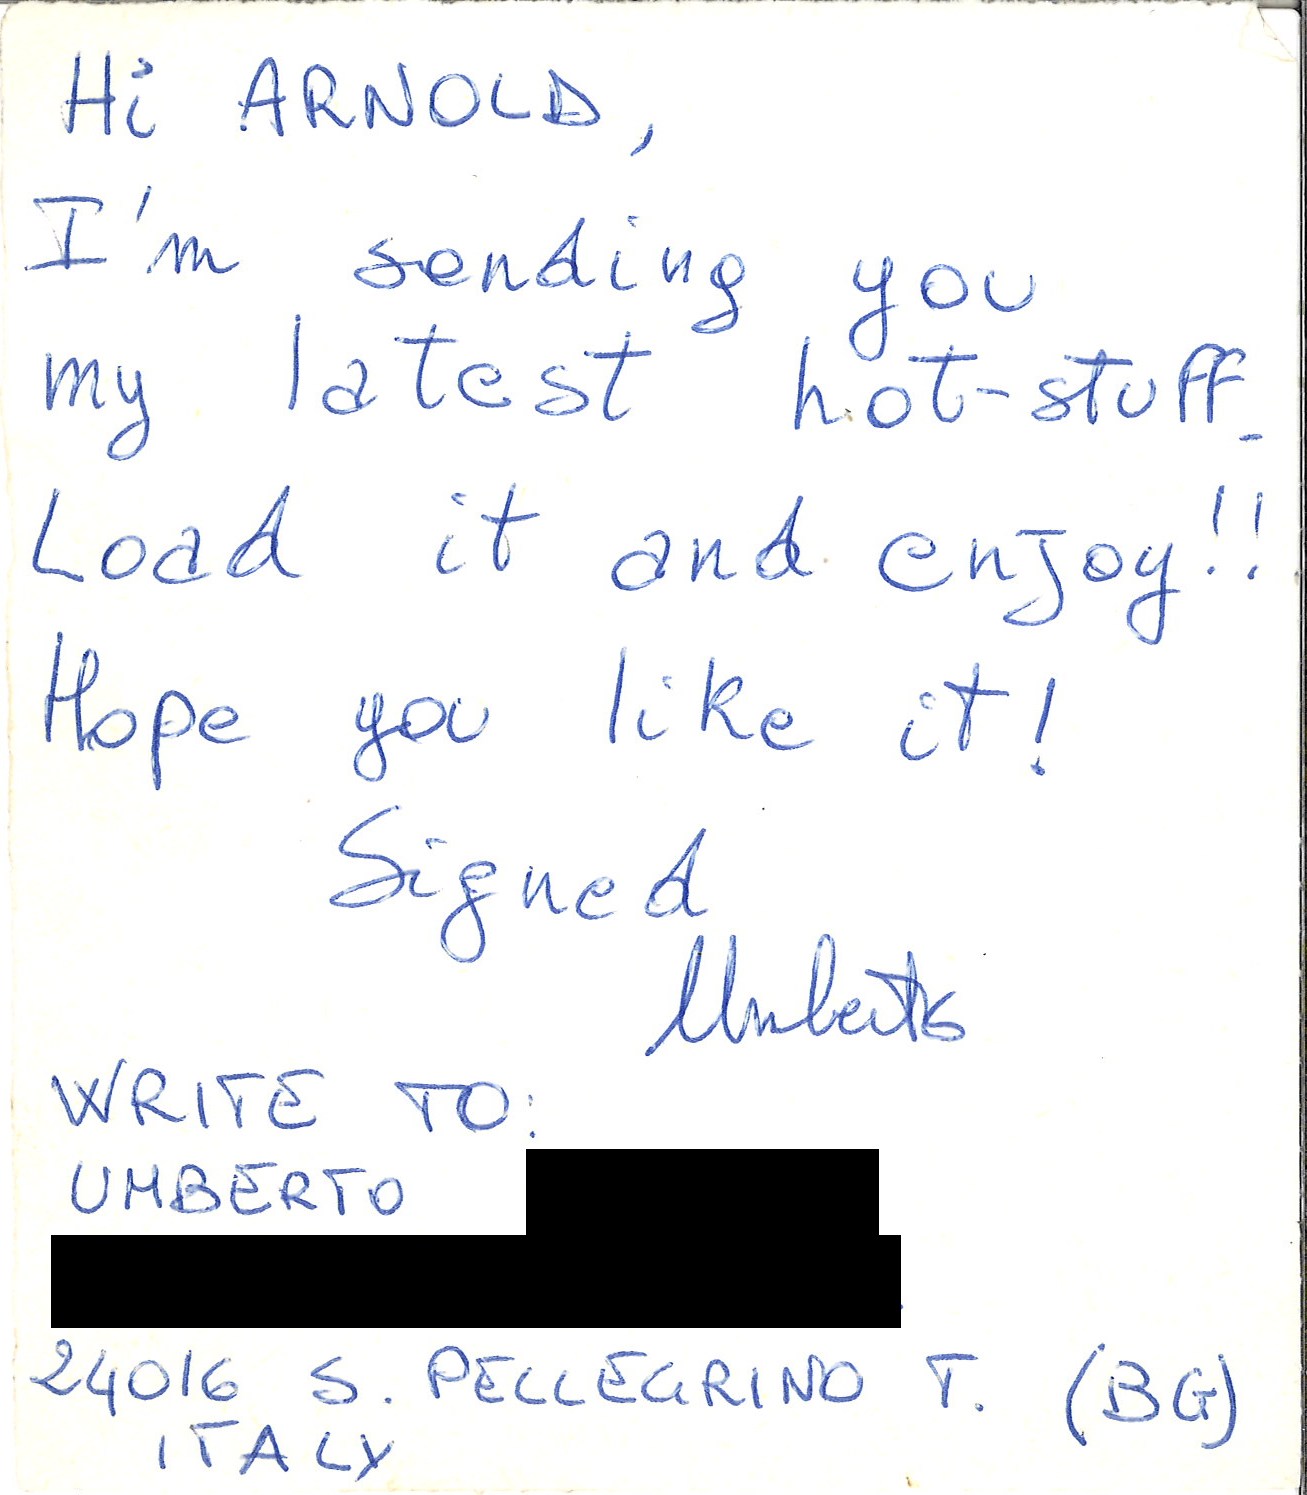 Hi ARNOLD,
I'm sending you
my latest hot-stuff.
Load it and enjoy!!
Hope you like it!
Signed
Umberto
WRITE TO:
UMBERTO
24016 S. PELLEGRINO T. (BG)
ITALY